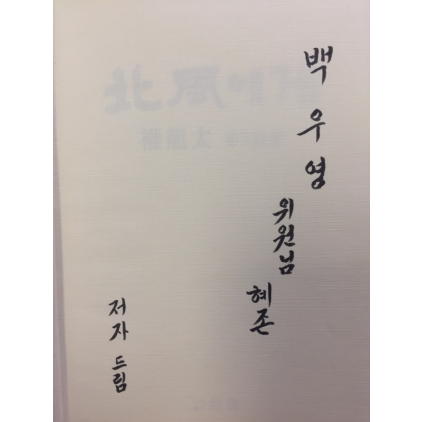 백우영
위원님
혜존
저자 드림